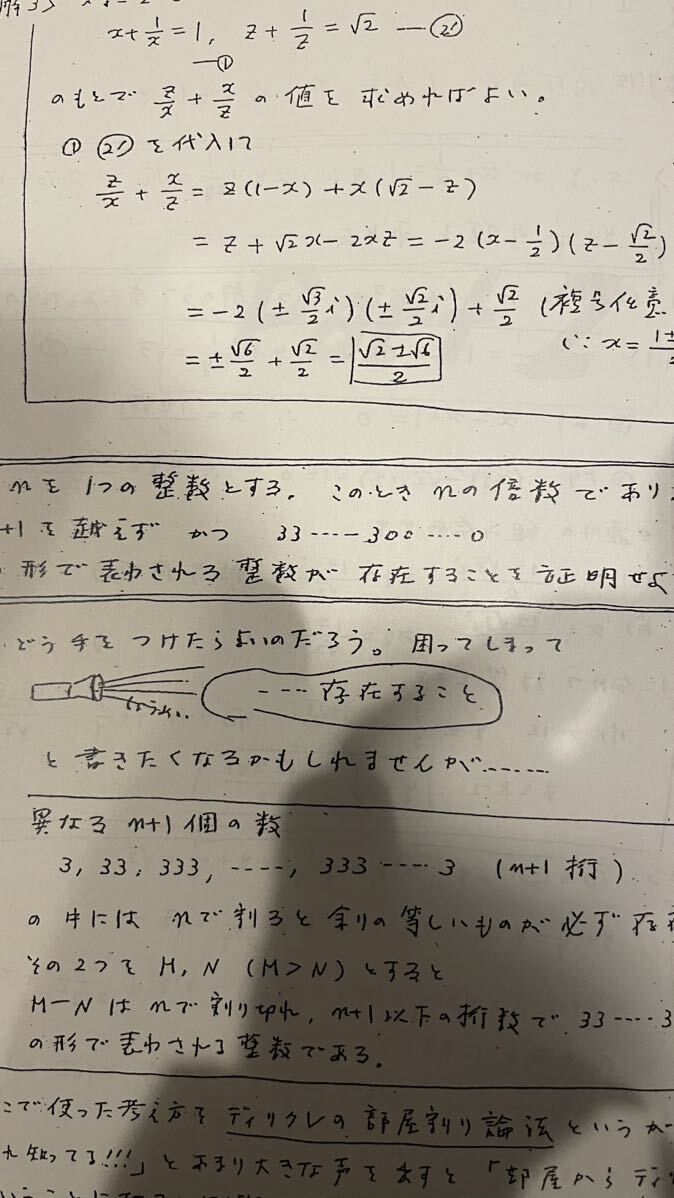 x+1/x=1, z+1/z=√2 —②'
—①
のもとで z/x + x/z の値を求めればよい。
① ②'を代入して
z/x + x/z = z(1-x) + x(√2-z)
= z+√2x-2xz = -2(x-1/2)(z-√2/2)
= -2(±√3/2 i)(±√2/2 i)+√2/2 (複号任意
= ±√6/2 + √2/2 = √2±√6/2 (∵ x=1±
nを1つの整数とする。このときnの倍数であり
+1を越えず かつ 33-----300-----0
形で表わされる整数が存在することを証明せよ
どう手をつけたらよいのだろう。困ってしまって
----存在すること
と書きたくなるかもしれませんが......
異なるn+1個の数
3, 33, 333, ----, 333----3 (n+1桁)
の中には nで割ると余りの等しいものが必ず存
その2つをM, N (M>N) とすると
M-N は nで割り切れ, n+1以下の桁数で 33----3
の形で表わされる整数である。
こで使った考え方をディリクレの部屋割り論法というか
れ知ってる!!!」とあまり大きな声を出すと「部屋からディ